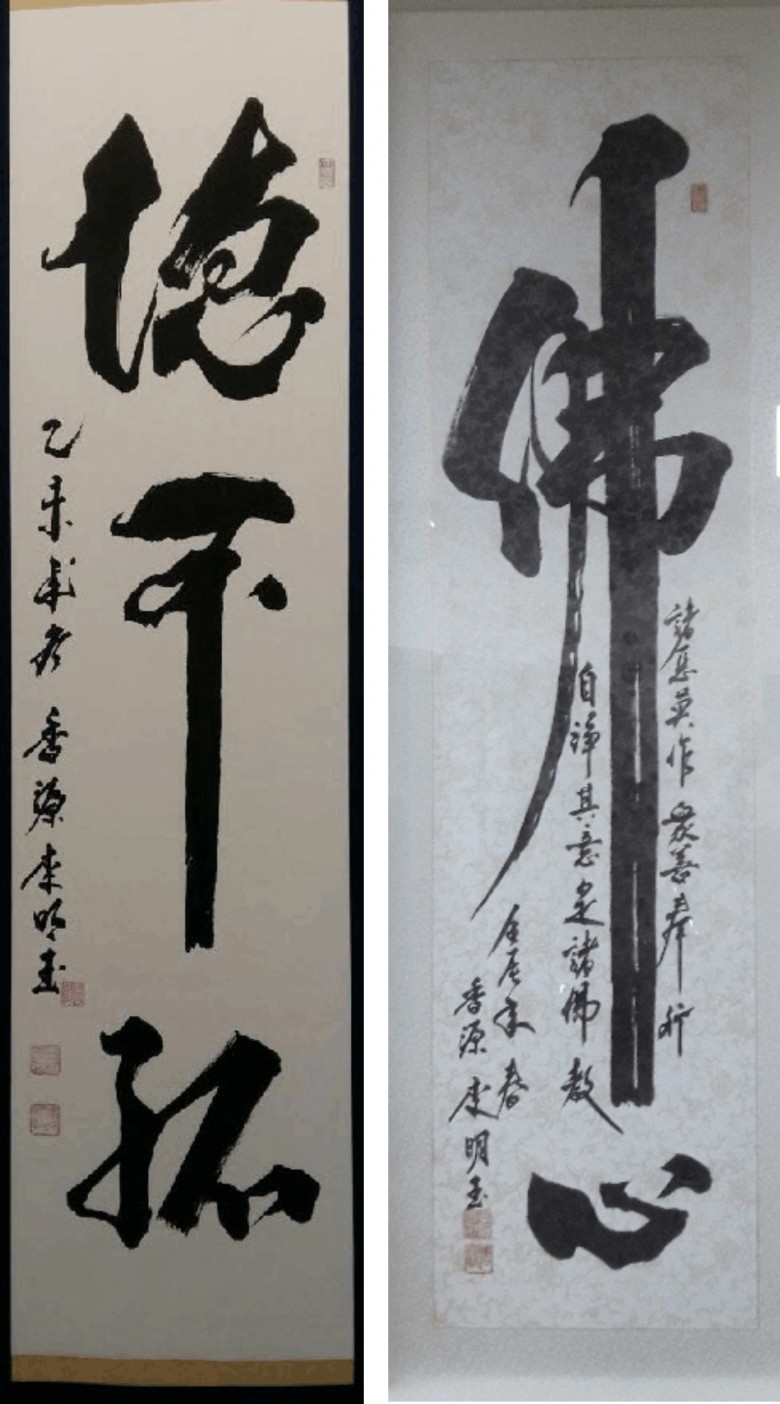 德不孤
乙未 香源 李明玉
佛心
諸惡莫作 衆善奉行
自淨其意 是諸佛教
壬辰年 春
香源 李明玉